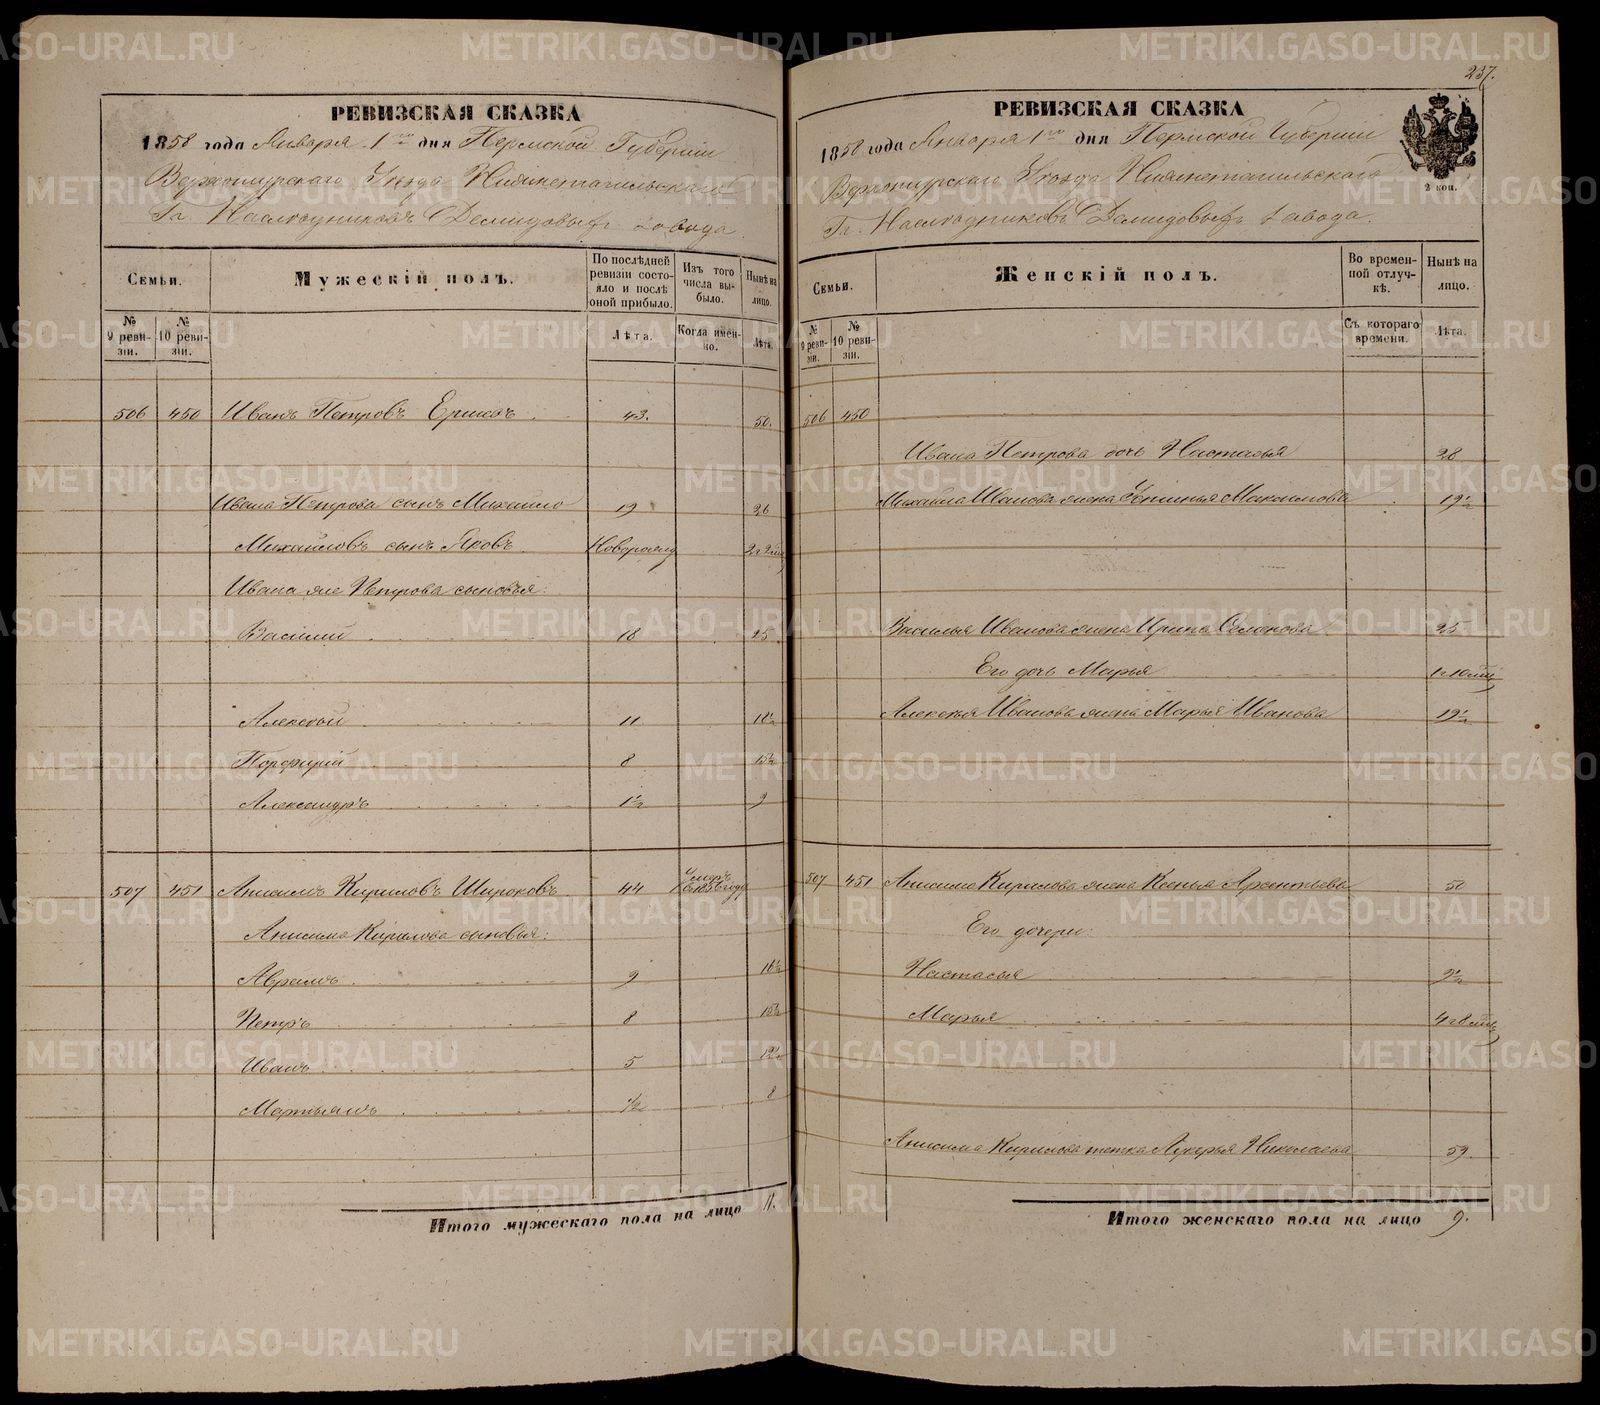 237.
РЕВИЗСКАЯ СКАЗКА
1858 года Января 1го дня Пермской Губерніи
Верхотурскаго Уѣзда Нижнетагильскаго
Гг. Наслѣдниковъ Демидовыхъ завода.
Семьи.
Мужескій полъ.
По послѣдней ревизіи состояло и послѣ оной прибыло.
Изъ того числа выбыло.
Нынѣ на лицо.
№ 9 ревизіи.
№ 10 ревизіи.
Лѣта.
Когда именно.
Лѣта.
506 450 Иванъ Петровъ Ершовъ 43. 50.
Ивана Петрова сынъ Михайло 19 26
Михайловъ сынъ Яковъ Новорожд 2 г 2 мц
Ивана же Петрова сыновья:
Василій 18 25
Алексѣй 11 18½
Порфирій 8 15½
Александръ 1½ 9
507 451 Анисимъ Кириловъ Широковъ 44 Умеръ въ году
Анисима Кирилова сыновья:
Аврамъ 9 16½
Петръ 8 15½
Иванъ 5 12½
Мартьянъ ½ 8
Итого мужескаго пола на лицо 11.
РЕВИЗСКАЯ СКАЗКА
1858 года Января 1го дня Пермской Губерніи
2 коп.
Верхотурскаго Уѣзда Нижнетагильскаго
Гг. Наслѣдниковъ Демидовыхъ завода.
Семьи.
Женскій полъ.
Во временной отлучкѣ.
Нынѣ на лицо.
№ 9 ревизіи.
№ 10 ревизіи.
Съ котораго времени.
Лѣта.
506 450
Ивана Петрова дочь Настасья 28
Михайла Иванова жена Устинья Максимова 19½
Василья Иванова жена Ирина Семенова 25
Его дочь Марья 1 г 10 мц
Алексѣя Иванова жена Марья Иванова 19½
507 451 Анисима Кирилова жена Ксенья Арсентьева 50
Его дочери:
Настасья 9½
Марья 4 г 8 мц
Анисима Кирилова тетка Лукерья Николаева 59.
Итого женскаго пола на лицо 9.
METRIKI.GASO-URAL.RU